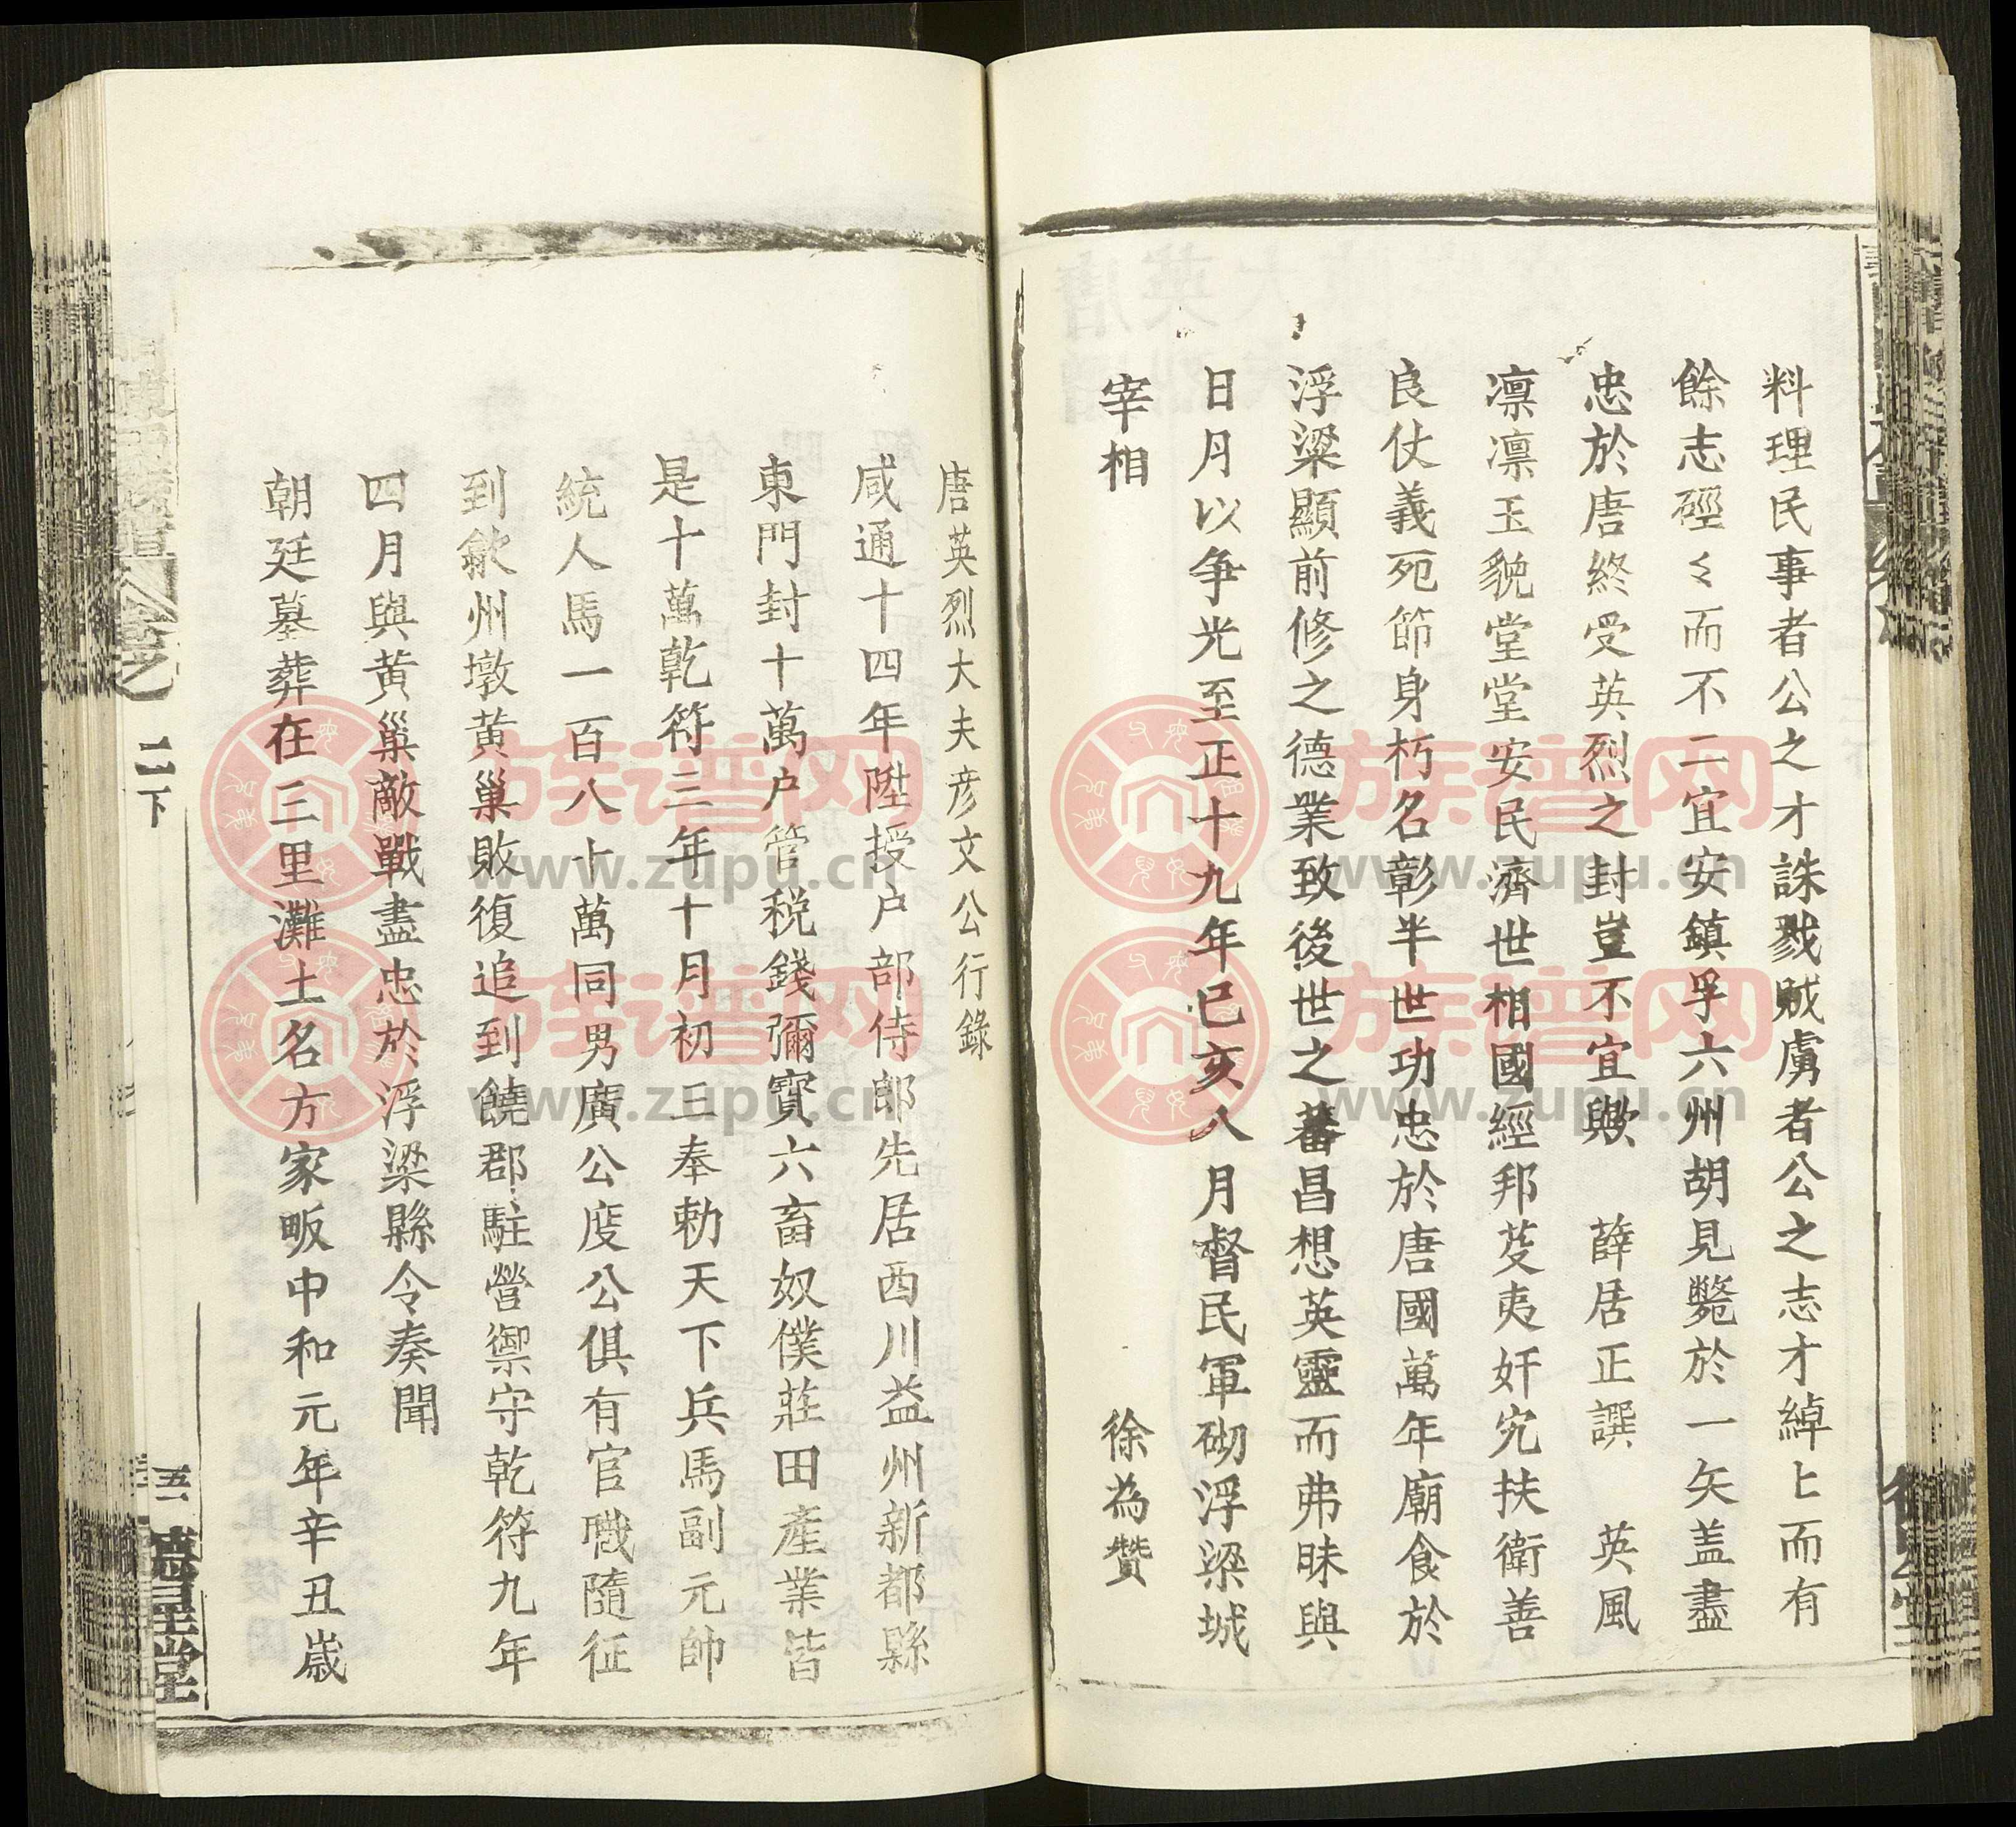 料理民事者公之才誅戮賊虜者公之志才綽〻而有
餘志硜〻而不二宜安鎮孚六州胡見斃於一矢盖盡
忠於唐終受英烈之封豈不宜歟　薛居正譔　英風
凛凛玉貌堂堂安民濟世相國經邦芟夷奸宄扶衛善
良仗義死節身朽名彰半世功忠於唐國萬年廟食於
浮梁顯前修之德業致後世之蕃昌想英靈而弗昧與
日月以争光至正十九年巳亥八月督民軍砌浮梁城
宰相　徐為贊
唐英烈大夫彦文公行錄
咸通十四年陞授户部侍郎先居西川益州新都縣
東門封十萬户管税錢彌寶六畜奴僕莊田產業皆
是十萬乾符三年十月初三奉勅天下兵馬副元帥
統人馬一百八十萬同男廣公度公俱有官職隨征
到歙州墩黄巢敗復追到饒郡駐營禦守乾符九年
四月與黄巢敵戰盡忠於浮梁縣令奏聞
朝廷墓葬在三里灘土名方家畈中和元年辛丑歲
卷之
二下
五
德星堂
族谱网
www.zupu.cn
族谱网
www.zupu.cn
族谱网
www.zupu.cn
族谱网
www.zupu.cn